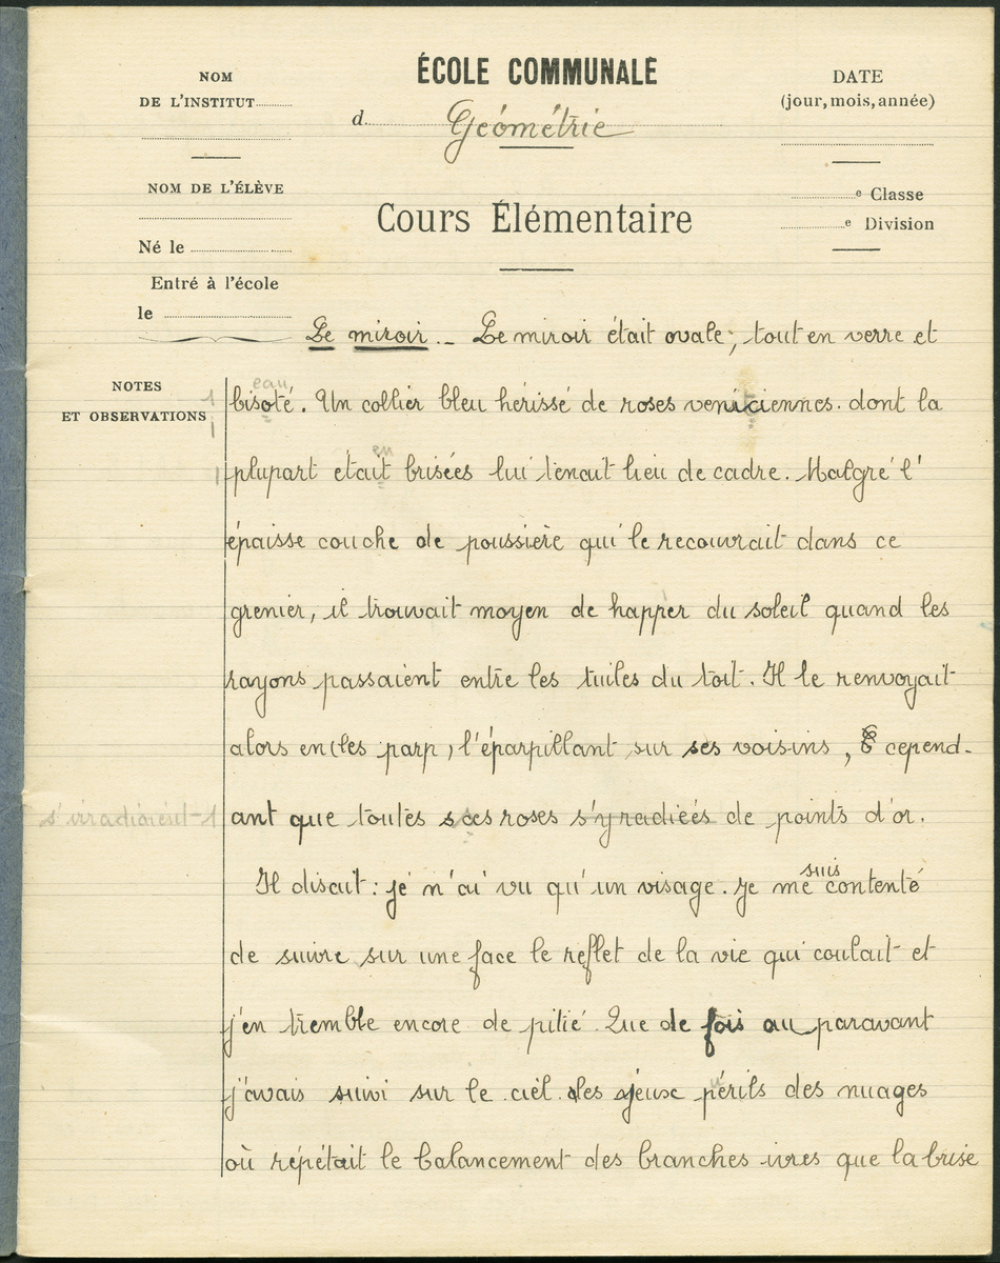 ÉCOLE COMMUNALE
NOM
DE L'INSTITUT
d. Géométrie
DATE
(jour, mois, année)
NOM DE L'ÉLÈVE
Né le
Entré à l'école
le
Cours Élémentaire
e Classe
e Division
Le miroir._ Le miroir était ovale, tout en verre et
NOTES
ET OBSERVATIONS
eau
bisoté. Un collier bleu hérissé de roses veniciennes. dont la
en
plupart etait brisées lui tenait lieu de cadre. Malgré l'
épaisse couche de poussière qui le recouvrait dans ce
grenier, il trouvait moyen de happer du soleil quand les
rayons passaient entre les tuiles du toit. Il le renvoyait
alors en les parp, l'éparpillant sur ses voisins, cepend-
s'irradiaient
ant que toutes ses roses s'yradiéés de points d'or.
suis
Il disait : je n'ai vu qu'un visage. Je me contenté
de suivre sur une face le reflet de la vie qui coulait et
j'en tremble encore de pitié. Que de fois au paravant
j'avais suivi sur le ciel. les jeux périls des nuages
où répétait le balancement des branches ivres que la brise